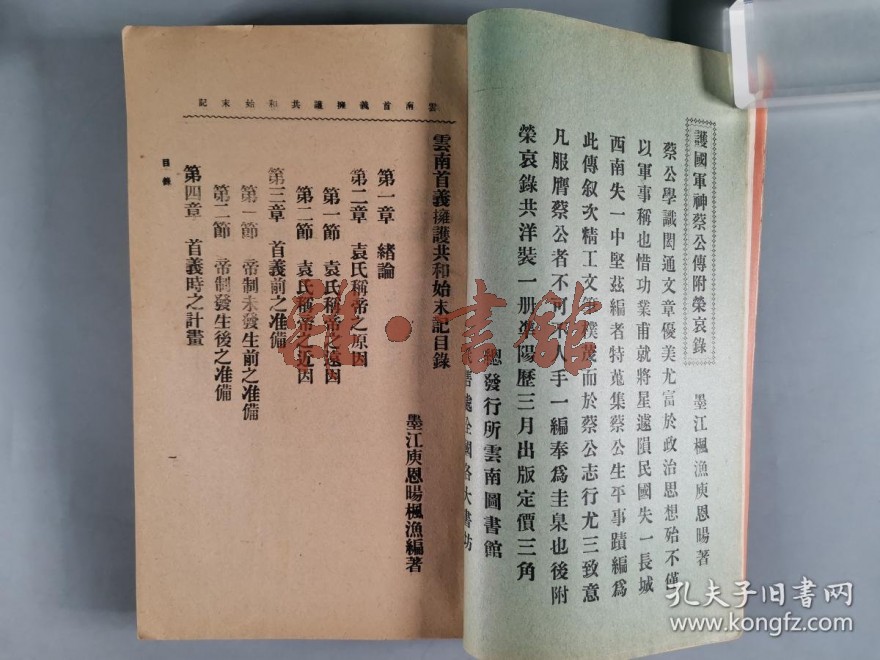 護國軍神蔡公傳附榮哀錄
墨江楓漁庾恩暘著
蔡公學識閎通文章優美尤富於政治思想殆不僅
以軍事稱也惜功業甫就將星遽隕民國失一長城
西南失一中堅茲編者特蒐集蔡公生平事蹟編爲
此傳叙次精工文章樸茂而於蔡公志行尤三致意
凡服膺蔡公者不可不人手一編奉爲圭臬也後附
榮哀錄共洋裝一册準陽歷三月出版定價三角
總發行所雲南圖書館
售處全國各大書坊
雲南首義擁護共和始末記
雲南首義擁護共和始末記目錄
墨江庾恩暘楓漁編著
第一章 緒論
第二章 袁氏稱帝之原因
第一節 袁氏稱帝之遠因
第二節 袁氏稱帝之近因
第三章 首義前之准備
第一節 帝制未發生前之准備
第二節 帝制發生後之准備
第四章 首義時之計畫
目錄
一
書館
孔夫子旧书网
www.kongfz.com